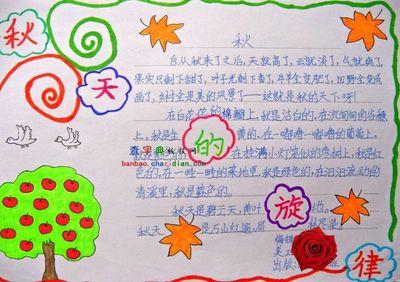 秋
天
的
旋
律
秋
自从秋来了之后，天就高了，云就淡了，气就爽了，
果实只剩下甜了，叶子光剩下黄了，牛羊全变肥了，田野全变成
画了，乡村全是美的风景了——这就是秋的天下呀！
在白花花的棉棚上，秋是洁白的，在沉甸甸的谷穗
上，秋是 黄的，在一嘟噜一嘟噜的葡萄上，
在挂满小灯笼似的枣树上，秋是红
色的，在一畦一畦的菜地里，秋是绿色的，在汩汩流动的
清溪里，秋是蓝色的。
秋天是碧云天，黄叶 地，
秋天 是万山红遍，层 林尽染。
查字典板报网
banbao.chazidian.com
编辑
美工
出版